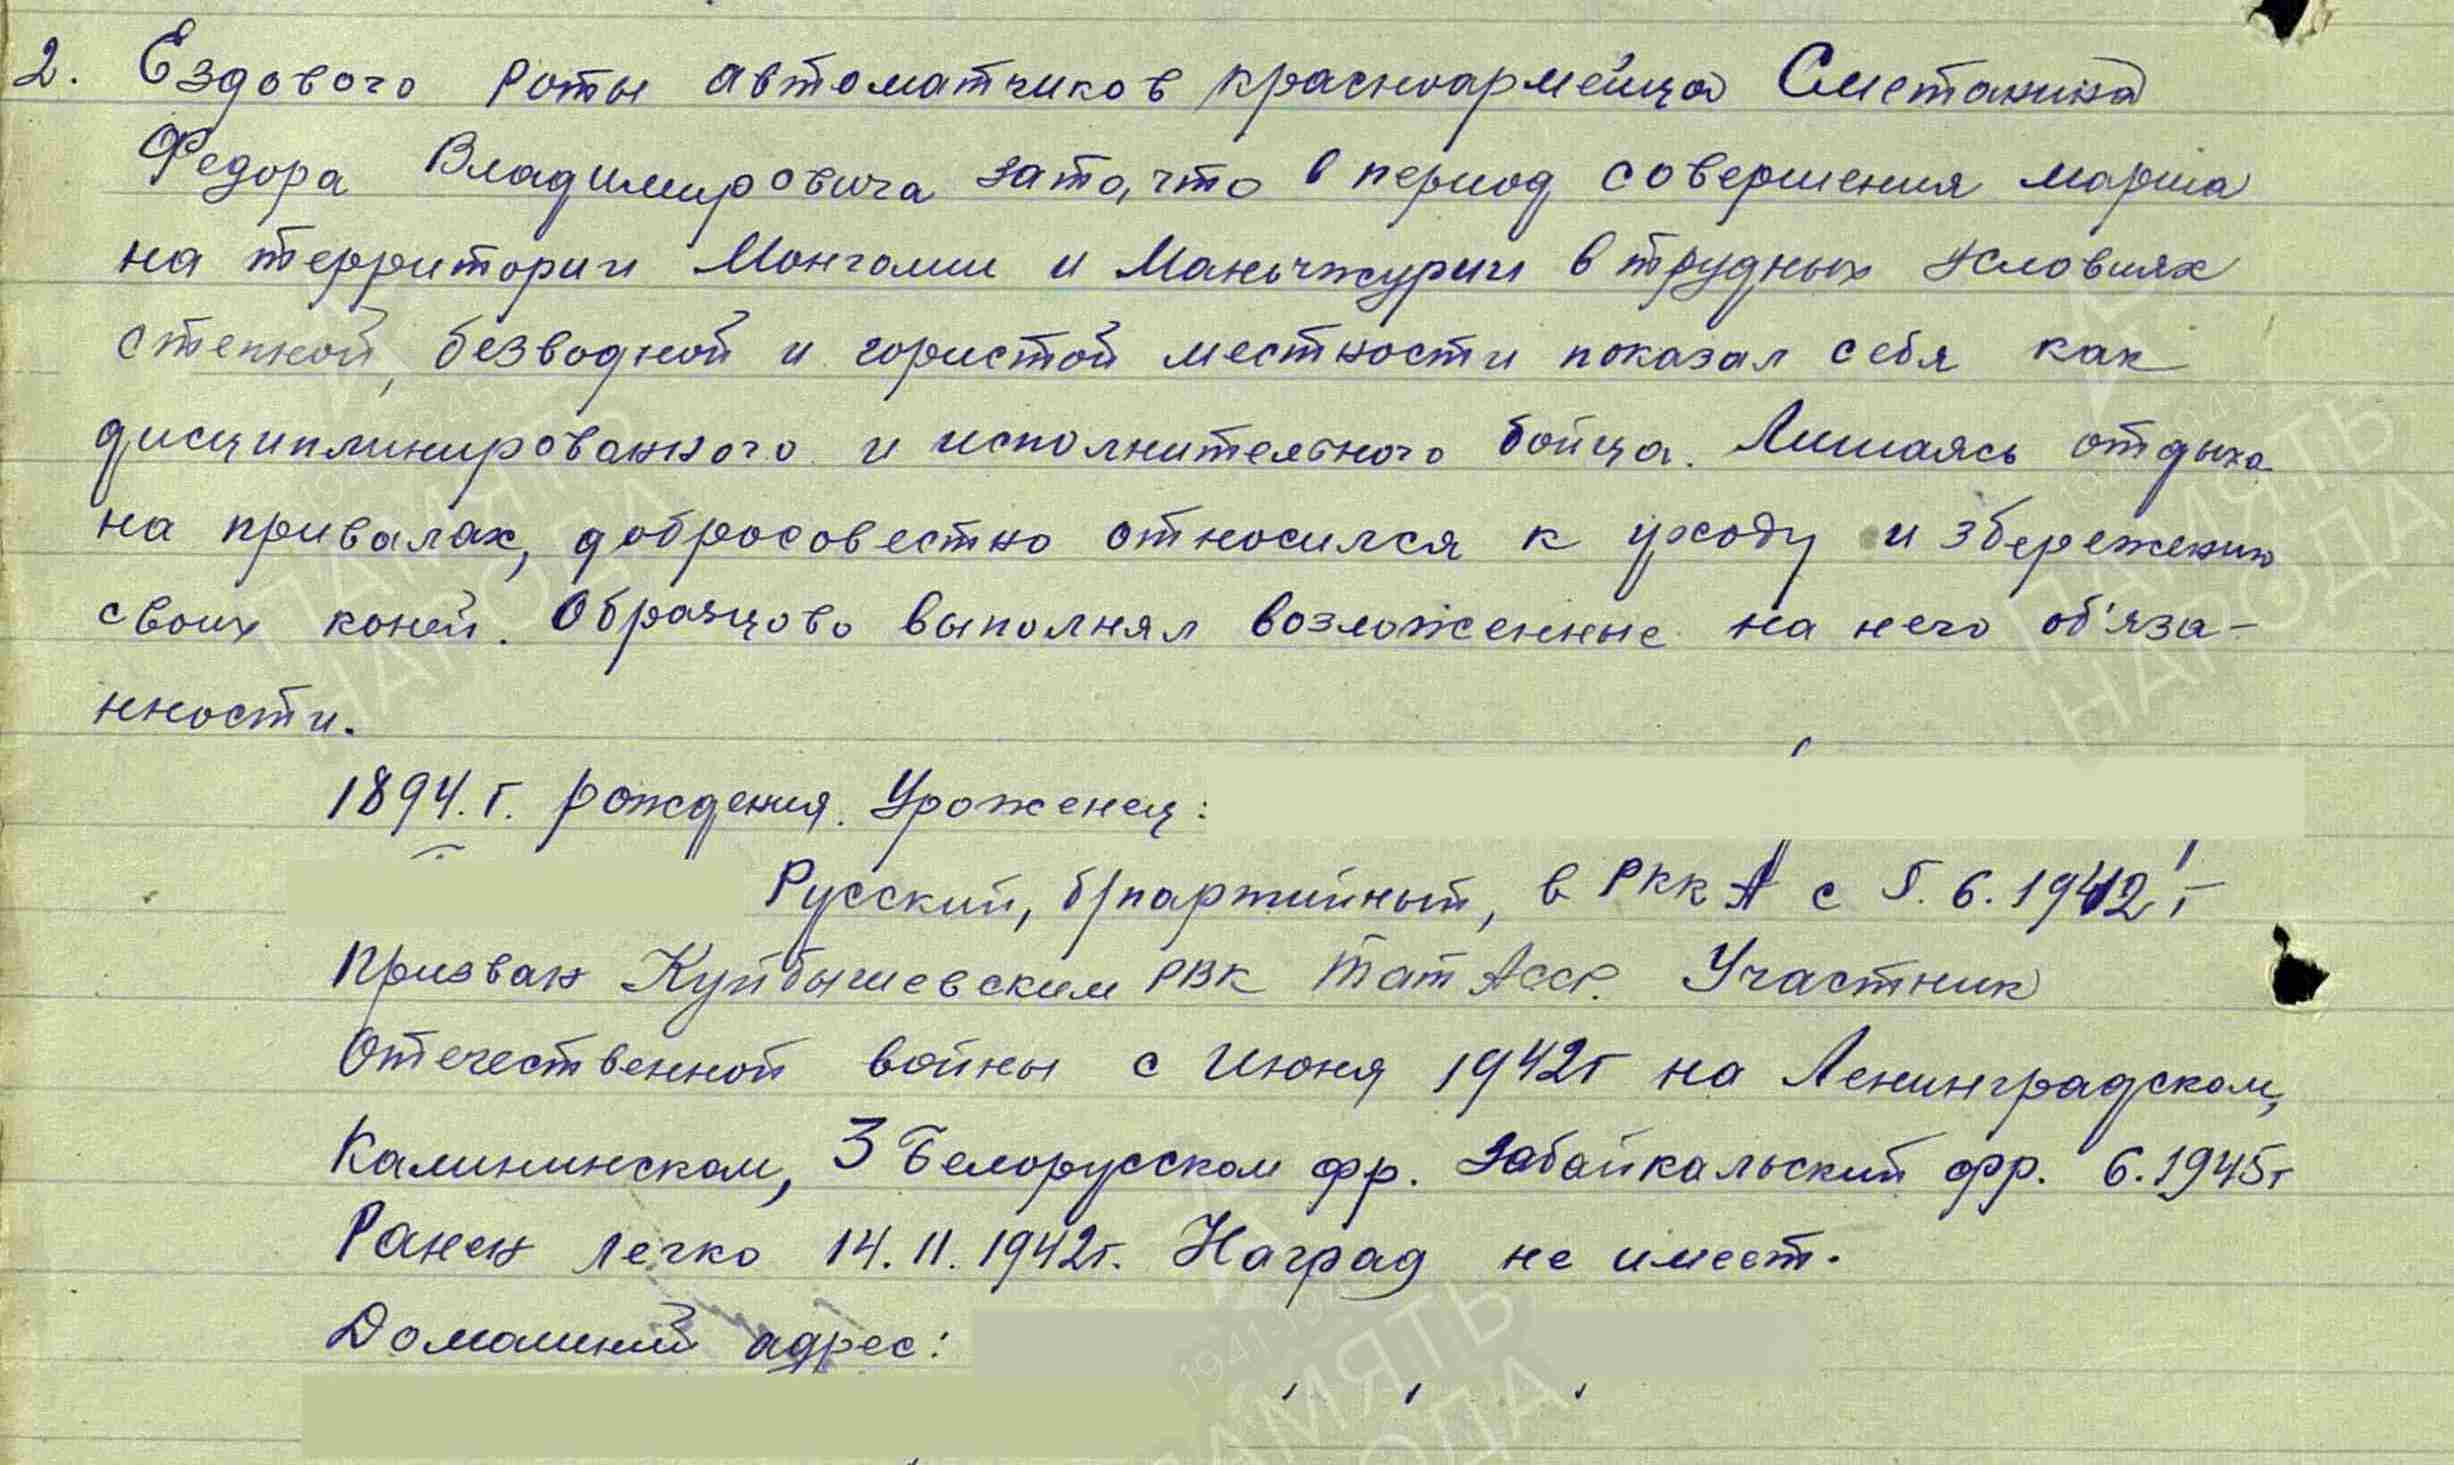 2. Ездового роты автоматчиков красноармейца Сметанина
Федора Владимировича зато, что в период совершения марша
на территории Монголии и Маньчжурии в трудных условиях
степной, безводной и гористой местности показал себя как
дисциплинированного и исполнительного бойца. Лишаясь отдыха
на привалах, добросовестно относился к уходу и збережению
своих коней. Образцово выполнял возложенные на него об'яза-
нности.
1894. г. рождения. Уроженец:
Русский, б/партийный, в РККА с 5.6.1942 г
Призван Куйбышевским РВК ТатАССР. Участник
Отечественной войны с июня 1942г на Ленинградском,
Калининском, 3 Белорусском фр. Забайкальский фр. 6.1945г
Ранен легко 14.11.1942г. Наград не имеет.
Домашний адрес:
ПАМЯТЬ
НАРОДА
ПАМЯТЬ
НАРОДА